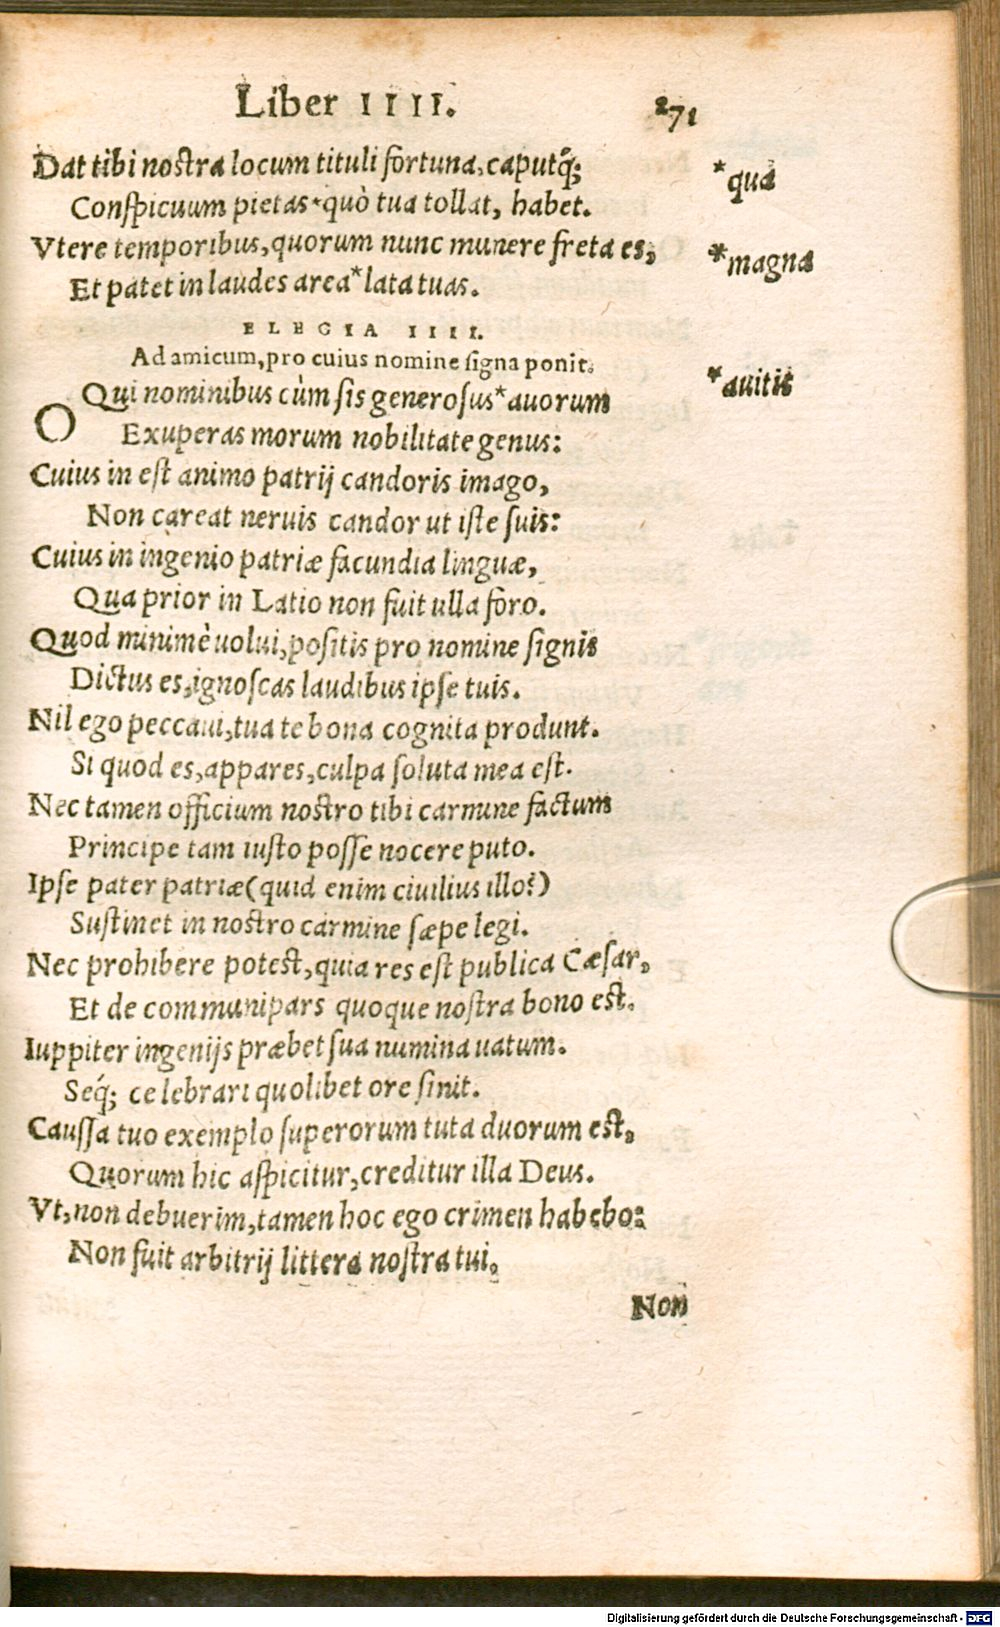 Liber IIII. 271
Dat tibi nostra locum tituli fortuna, caputq́;
Conspicuum pietas *quò tua tollat, habet.
*qua
Vtere temporibus, quorum nunc munere freta es,
Et patet in laudes area *lata tuas.
*magna
ELEGIA IIII.
Ad amicum, pro cuius nomine signa ponit.
O Qui nominibus cùm sis generosus *auorum
*auitis
Exuperas morum nobilitate genus:
Cuius in est animo patrij candoris imago,
Non careat neruis candor ut iste suis:
Cuius in ingenio patriæ facundia linguæ,
Qua prior in Latio non fuit ulla foro.
Quod minimè uolui, positis pro nomine signis
Dictus es, ignoscas laudibus ipse tuis.
Nil ego peccaui, tua te bona cognita produnt.
Si quod es, appares, culpa soluta mea est.
Nec tamen officium nostro tibi carmine factum
Principe tam iusto posse nocere puto.
Ipse pater patriæ (quid enim ciuilius illo?)
Sustinet in nostro carmine sæpe legi.
Nec prohibere potest, quia res est publica Cæsar,
Et de communi pars quoque nostra bono est.
Iuppiter ingenijs præbet sua numina uatum.
Seq́; celebrari quolibet ore sinit.
Caussa tuo exemplo superorum tuta duorum est,
Quorum hic aspicitur, creditur illa Deus.
Vt, non debuerim, tamen hoc ego crimen habebo:
Non fuit arbitrij littera nostra tui.
Non
Digitalisierung gefördert durch die Deutsche Forschungsgemeinschaft - DFG